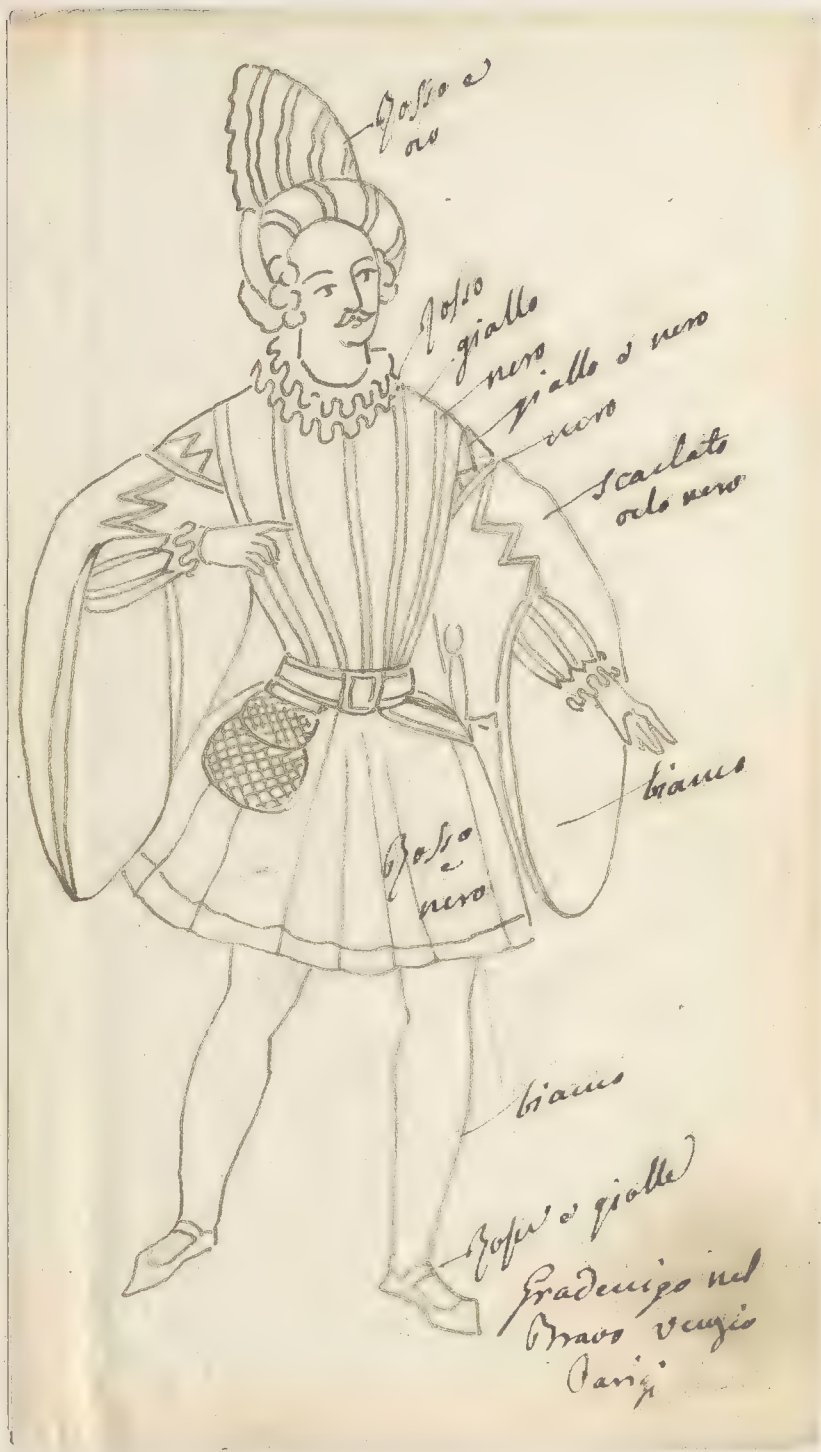 Rosso e
oro
Rosso
giallo
nero
giallo e nero
nero
scarlato
orlo nero
bianco
Rosso
e
nero
bianco
Rosse e gialle
Gradenigo nel
Bravo
Parigi